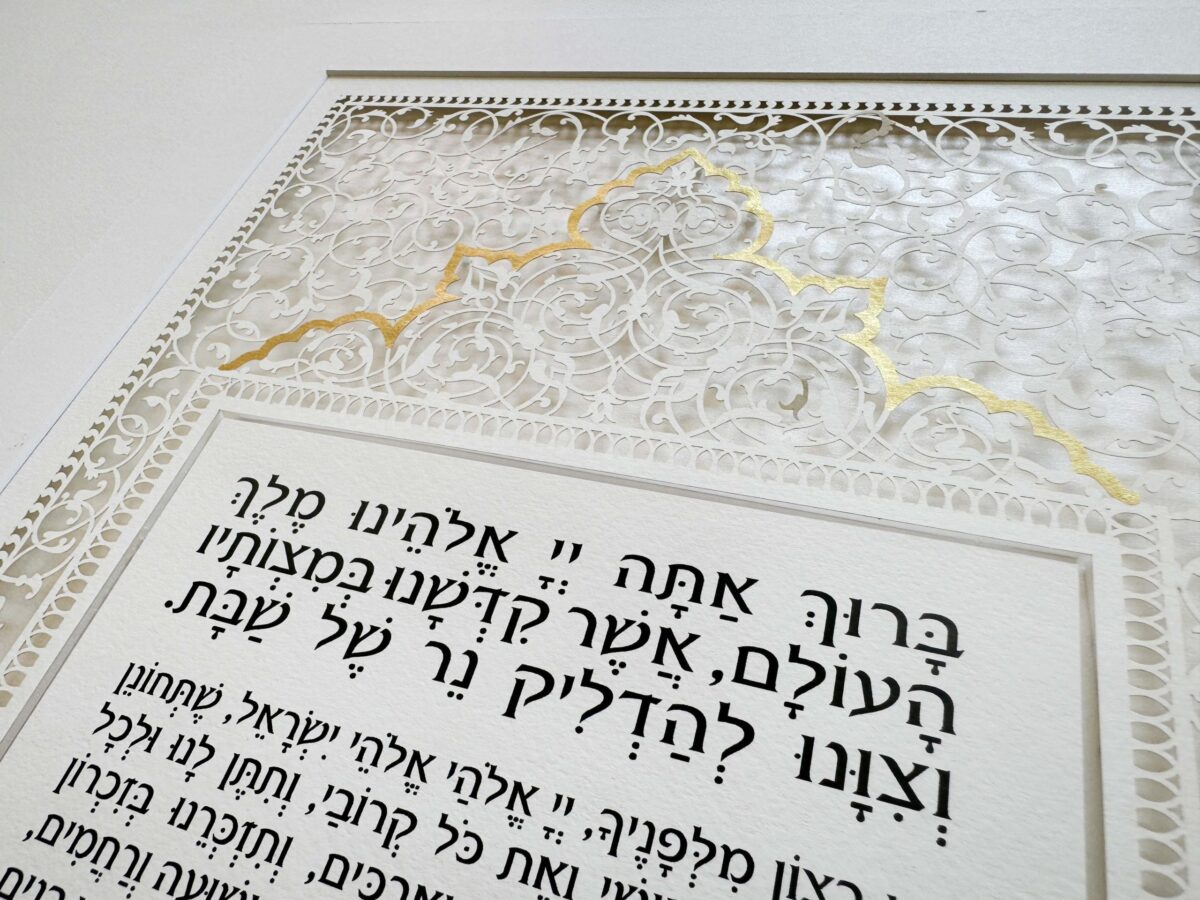 בָּרוּךְ אַתָּה יְיָ אֱלֹהֵינוּ מֶלֶךְ
הָעוֹלָם, אֲשֶׁר קִדְּשָׁנוּ בְּמִצְוֹתָיו
וְצִוָּנוּ לְהַדְלִיק נֵר שֶׁל שַׁבָּת.
רָצוֹן מִלְּפָנֶיךָ, יְיָ אֱלֹהַי אֱלֹהֵי יִשְׂרָאֵל, שֶׁתְּחוֹנֵן
וְאֶת כָּל קְרוֹבַי, וְתִתֶּן לָנוּ וּלְכָל
וְתִזְכְּרֵנוּ בְּזִכְרוֹן
וְרַחֲמִים,